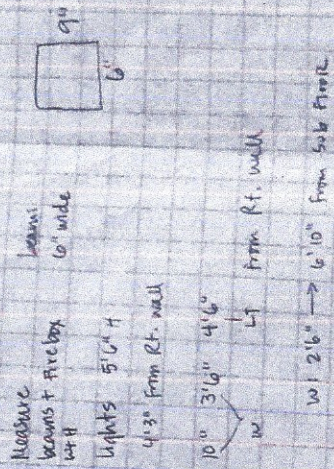 Measure
beams + Firebox
W+H
beams
6" wide
9"
6"
Lights 5'6" H
4'3" From Rt. wall
10" 3'6" 4'6"
W LT From Rt. wall
W: 2'6" → 6'10" From Sub Floor